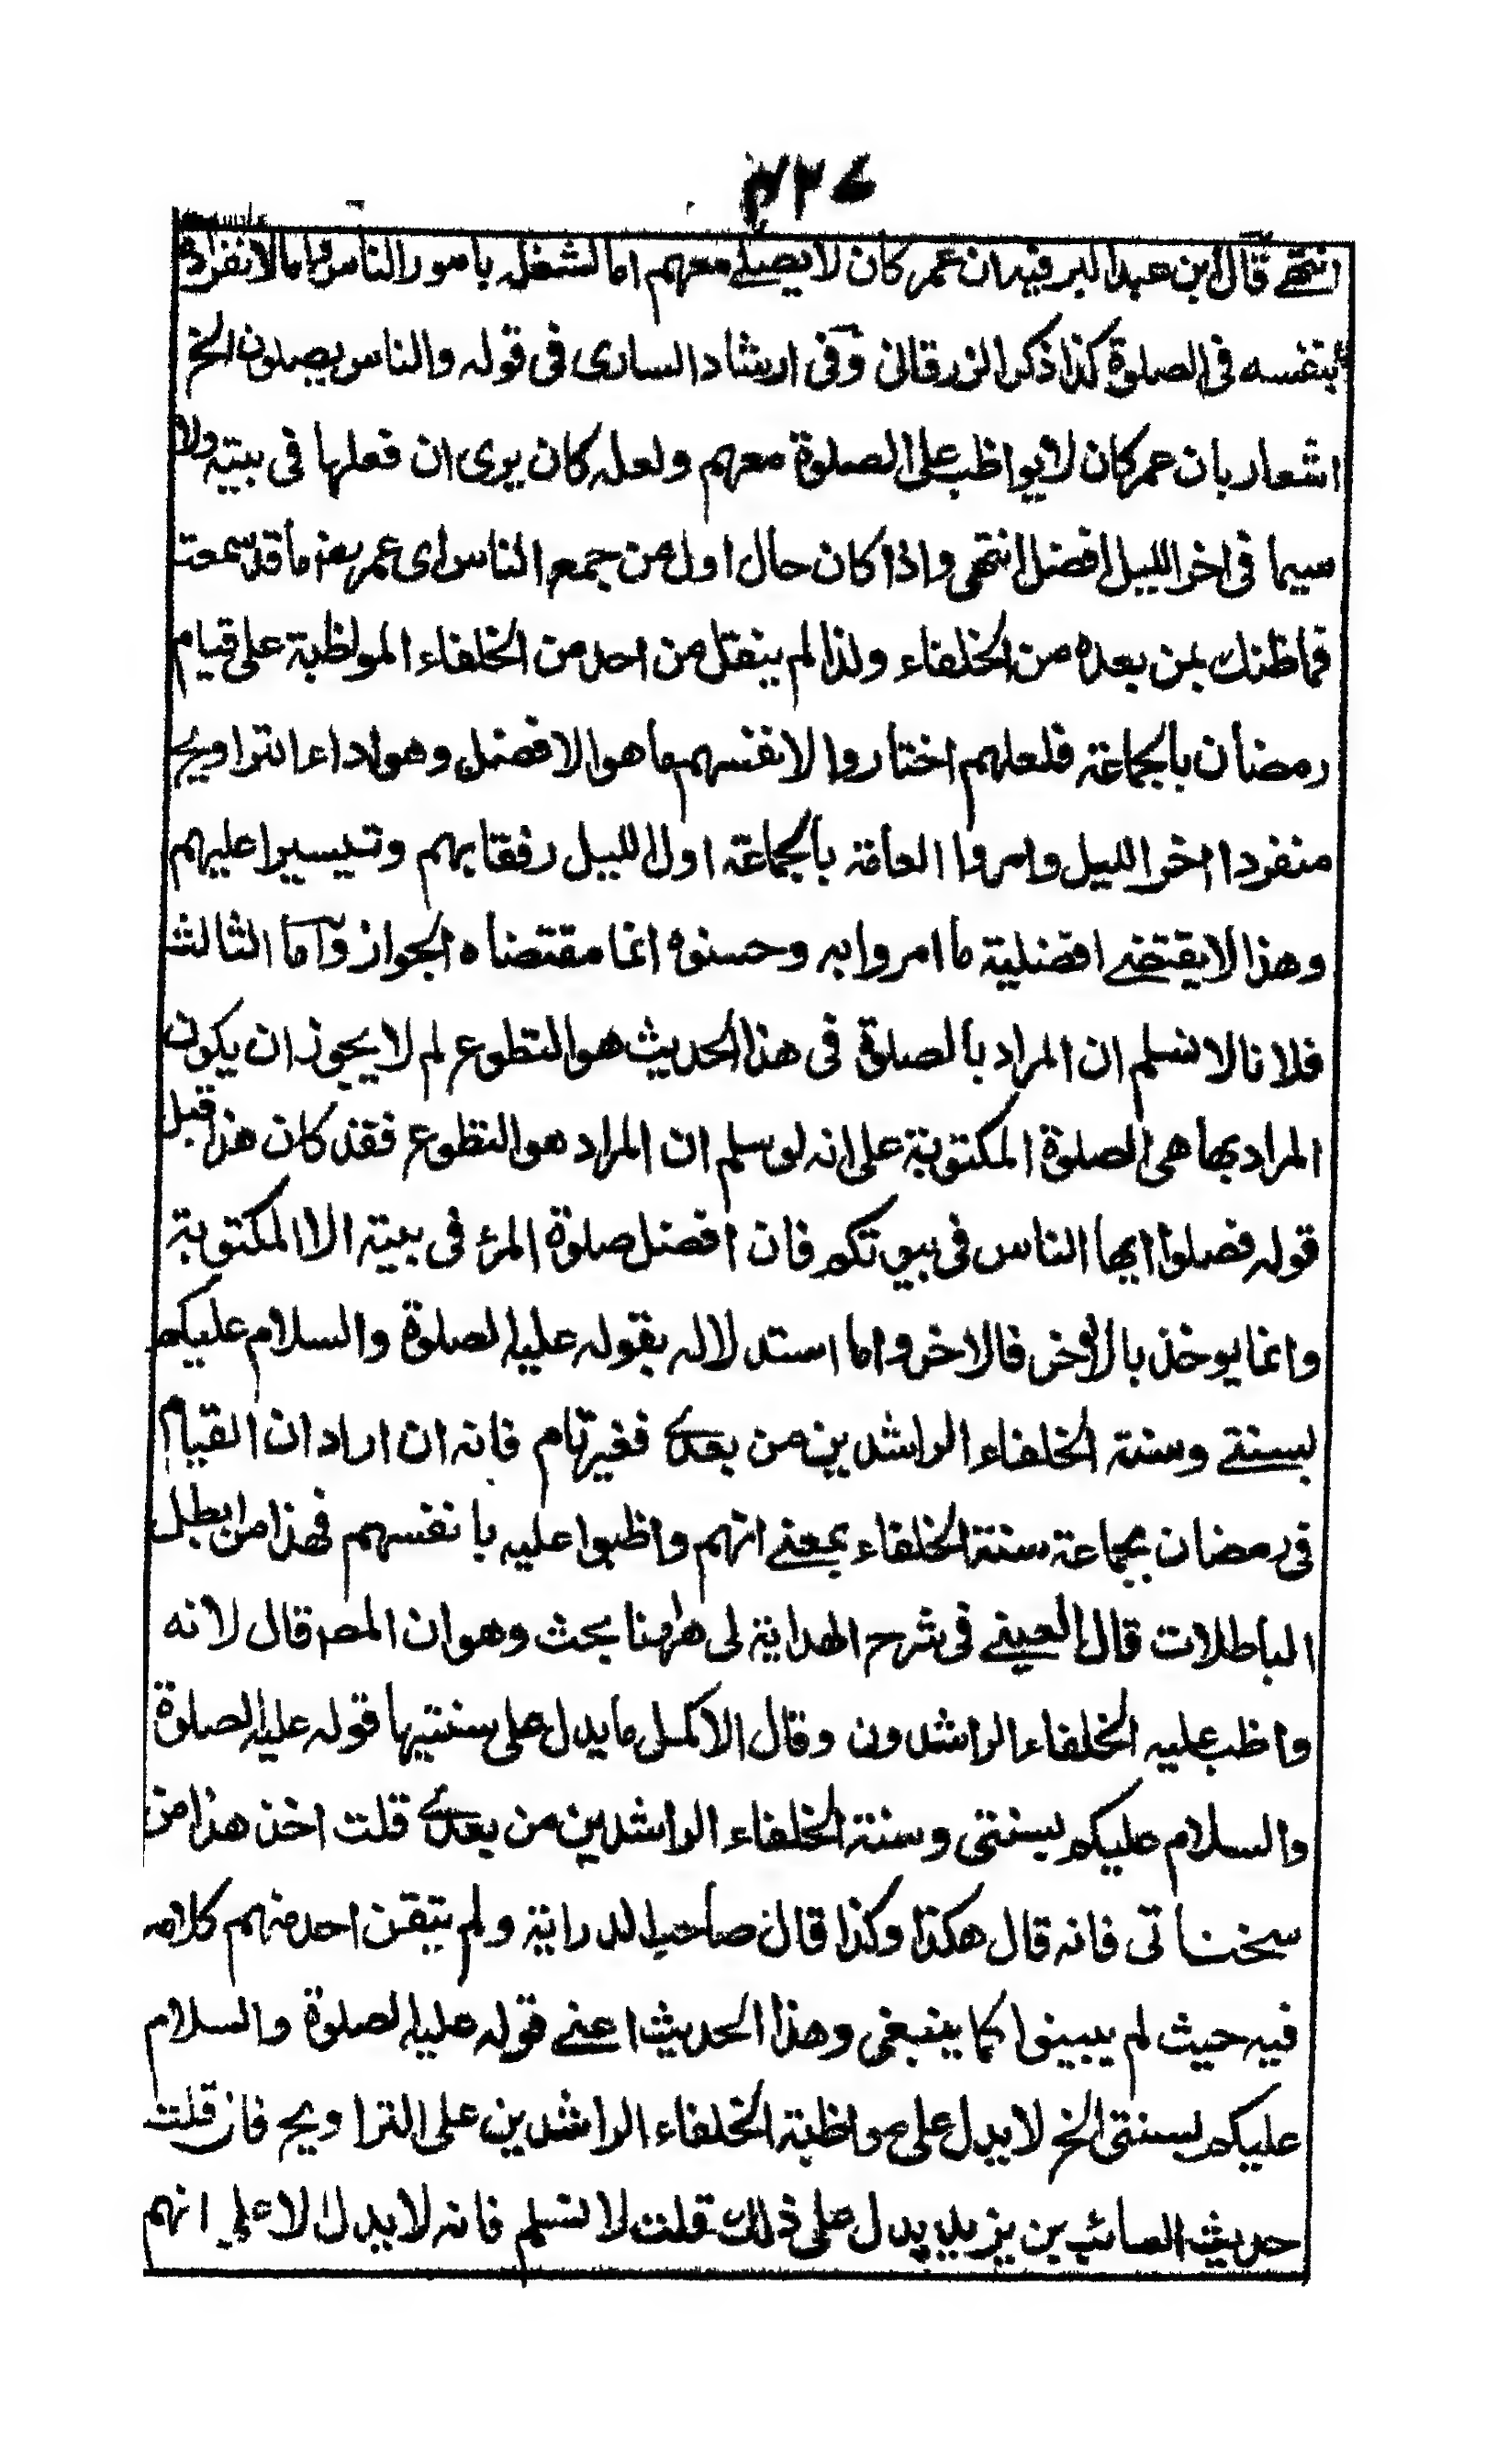 ٤٢٧
انتهى قال ابن عبد البر فيه ان عمر كان لا يصلے معهم اما لشغله بامور الناس واما لانفراده
بنفسه فى الصلوة كذا ذكر الزرقانى وفى ارشاد السارى فى قوله والناس يصلون الخ
اشعار بان عمر كان لا يواظب على الصلوة معهم ولعله كان يرى ان فعلها فى بيته ولا
سيما فى اخر الليل افضل انتهى واذا كان حال اول من جمع الناس اى عمر بعد ما قد سمعت
فما ظنك بمن بعده من الخلفاء ولذا لم ينقل من احد من الخلفاء المواظبة على قيام
رمضان بالجماعة فلعلهم اختاروا لانفسهم ما هو الافضل وهو اداء التراويح
منفردا اخر الليل وامروا العامة بالجماعة اول الليل رفقا بهم وتيسيرا عليهم
وهذا لا يقتضے افضلية ما امروا به وحسنوه انما مقتضاه الجواز واما الثالث
فلانا لا نسلم ان المراد بالصلوة فى هذا الحديث هو التطوع لم لا يجوز ان يكون
المراد بها هى الصلوة المكتوبة على انه لو سلم ان المراد هو التطوع فقد كان هذا قبل
قوله فصلوا ايها الناس فى بيوتكم فان افضل صلوة المرء فى بيته الا المكتوبة
وانما يوخذ بالاخر فالاخر واما استدلاله بقوله عليه الصلوة والسلام عليكم
بسنتے وسنة الخلفاء الراشدين من بعدے فغير تام فانه ان اراد ان القيام
فى رمضان بجماعة سنة الخلفاء بمعنے انهم واظبوا عليه بانفسهم فهذا من ابطل
الباطلات قال العينے فى شرح الهداية لى ههنا بحث وهو ان المصـ قال لانه
واظب عليه الخلفاء الراشدون وقال الاكمل ما يدل على سنتيها قوله عليه الصلوة
والسلام عليكم بسنتى وسنة الخلفاء الراشدين من بعدے قلت اخذ هذا من
سخناتى فانه قال هكذا وكذا قال صاحب الدراية ولم يتقن احد منهم كلامه
فيه حيث لم يبينوا كما ينبغى وهذا الحديث اعنے قوله عليه الصلوة والسلام
عليكم بسنتى الخ لا يدل على مواظبة الخلفاء الراشدين على التراويح فان قلت
حديث السائب بن يزيد يدل على ذلك قلت لا نسلم فانه لا يدل الا على انهم